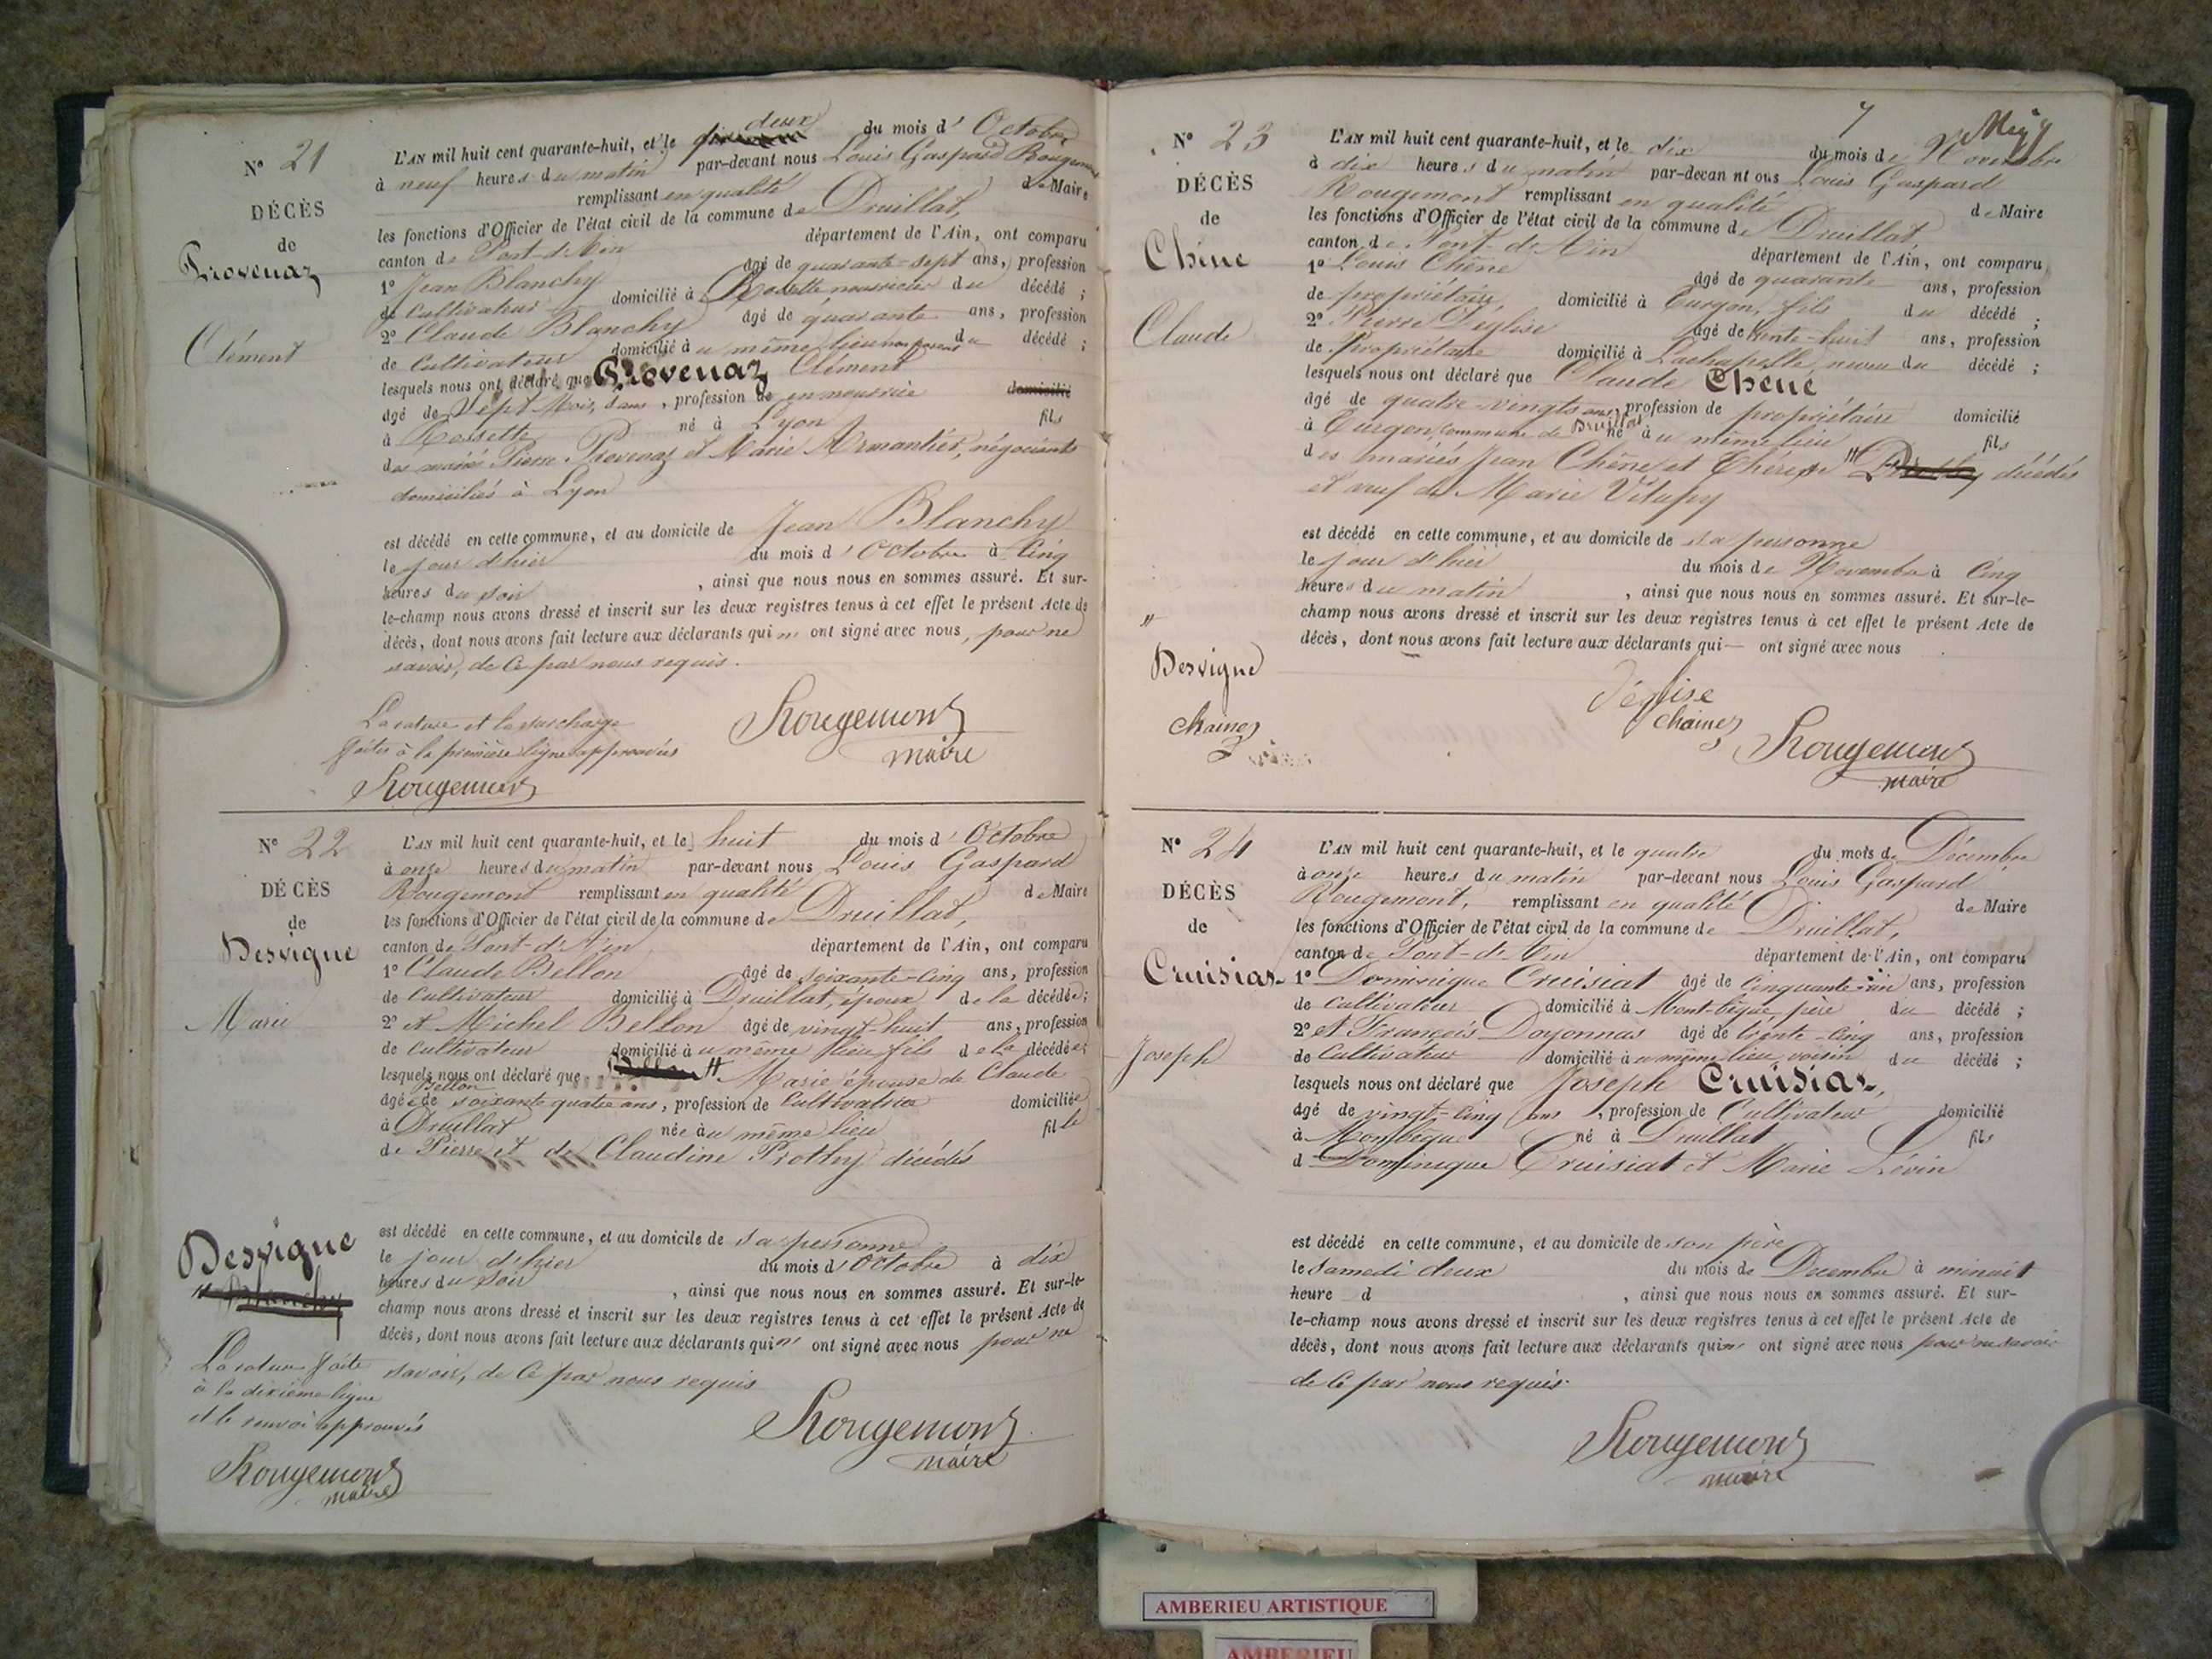 N° 21
DÉCÈS
de
Provenaz
Clément
L'AN mil huit cent quarante-huit, et le deux du mois d' Octobre
à neuf heures du matin par-devant nous Louis Gaspard Rougemont
remplissant en qualité de Maire
les fonctions d'Officier de l'état civil de la commune de Druillat,
canton de Pont-d'Ain département de l'Ain, ont comparu
1° Jean Blanchy âgé de quarante-sept ans, profession
de Cultivateur domicilié à Rossette nourricier du décédé ;
2° Claude Blanchy âgé de quarante ans, profession
de Cultivateur domicilié au même lieu non parent du décédé ;
lesquels nous ont déclaré que Provenaz Clément
âgé de Sept Mois, sans , profession de en nourrice domicilié
à Rossette né à Lyon fils
des mariés Pierre Provenaz et Marie Armantier, négociants
domiciliés à Lyon
est décédé en cette commune, et au domicile de Jean Blanchy
le jour d'hier du mois d' Octobre à Cinq
heures du soir , ainsi que nous nous en sommes assuré. Et sur-
le-champ nous avons dressé et inscrit sur les deux registres tenus à cet effet le présent Acte de
décès, dont nous avons fait lecture aux déclarants qui n' ont signé avec nous, pour ne
savoir, de ce par nous requis.
La rature et la surcharge
faites à la première ligne approuvées
Rougemont
Rougemont
maire
N° 22
DÉCÈS
de
Desvigne
Marie
L'AN mil huit cent quarante-huit, et le huit du mois d' Octobre
à onze heures du matin par-devant nous Louis Gaspard
Rougemont remplissant en qualité de Maire
les fonctions d'Officier de l'état civil de la commune de Druillat,
canton de Pont-d'Ain département de l'Ain, ont comparu
1° Claude Bellon âgé de soixante-cinq ans, profession
de Cultivateur domicilié à Druillat, époux de la décédée ;
2° et Michel Bellon âgé de vingt-huit ans, profession
de Cultivateur domicilié au même lieu fils de la décédée ;
lesquels nous ont déclaré que Bellon # Marie épouse de Claude
Bellon
âgée de soixante quatre ans, profession de Cultivatrice domiciliée
à Druillat née au même lieu fille
de Pierre et de Claudine Prothy décédés
est décédé en cette commune, et au domicile de sa personne
le jour d'hier du mois d' Octobre à dix
heures du soir , ainsi que nous nous en sommes assuré. Et sur-le-
champ nous avons dressé et inscrit sur les deux registres tenus à cet effet le présent Acte de
décès, dont nous avons fait lecture aux déclarants qui n' ont signé avec nous pour ne
savoir, de ce par nous requis
Desvigne
# Blanchy
La rature faite
à la dixième ligne
et le renvoi approuvés
Rougemont
maire
Rougemont
maire
7
N° 23
DÉCÈS
de
Chêne
Claude
L'AN mil huit cent quarante-huit, et le dix du mois de Novembre
à dix heures du matin par-devan nt ous Louis Gaspard
Rougemont remplissant en qualité de Maire
les fonctions d'Officier de l'état civil de la commune de Druillat,
canton de Pont-d'Ain département de l'Ain, ont comparu
1° Louis Chêne âgé de quarante ans, profession
de propriétaire, domicilié à Turgon, fils du décédé ;
2° Pierre Deglise âgé de trente-huit ans, profession
de Propriétaire domicilié à Lachapelle, neveu du décédé ;
lesquels nous ont déclaré que Claude Chêne
âgé de quatre-vingts ans, profession de propriétaire domicilié
à Turgon, commune de Druillat né au même lieu fils
des mariés Jean Chêne et Thérèse # décédés
et veuf de Marie Vélupy
est décédé en cette commune, et au domicile de sa personne
le jour d'hier du mois de Novembre à Cinq
heures du matin , ainsi que nous nous en sommes assuré. Et sur-le-
champ nous avons dressé et inscrit sur les deux registres tenus à cet effet le présent Acte de
décès, dont nous avons fait lecture aux déclarants qui — ont signé avec nous
Desvigne
chaine
Déglise
chaine
Rougemont
maire
N° 24
DÉCÈS
de
Cruisiat
Joseph
L'AN mil huit cent quarante-huit, et le quatre du mois de Décembre
à onze heures du matin par-devant nous Louis Gaspard
Rougemont, remplissant en qualité de Maire
les fonctions d'Officier de l'état civil de la commune de Druillat,
canton de Pont-d'Ain département de l'Ain, ont comparu
1° Dominique Cruisiat âgé de Cinquante-un ans, profession
de Cultivateur domicilié à Mont-bègue, père du décédé ;
2° et François Doyonnas âgé de trente-cinq ans, profession
de Cultivateur domicilié au même lieu, voisin du décédé ;
lesquels nous ont déclaré que Joseph Cruisiat,
âgé de vingt-cinq ans , profession de Cultivateur domicilié
à Monbègue né à Druillat fils
d Dominique Cruisiat et Marie Lévin
est décédé en cette commune, et au domicile de son père
le Samedi deux du mois de Décembre à minuit
heure d , ainsi que nous nous en sommes assuré. Et sur-
le-champ nous avons dressé et inscrit sur les deux registres tenus à cet effet le présent Acte de
décès, dont nous avons fait lecture aux déclarants qui n' ont signé avec nous pour ne savoir
de ce par nous requis.
Rougemont
maire
AMBERIEU ARTISTIQUE
AMBERIEU